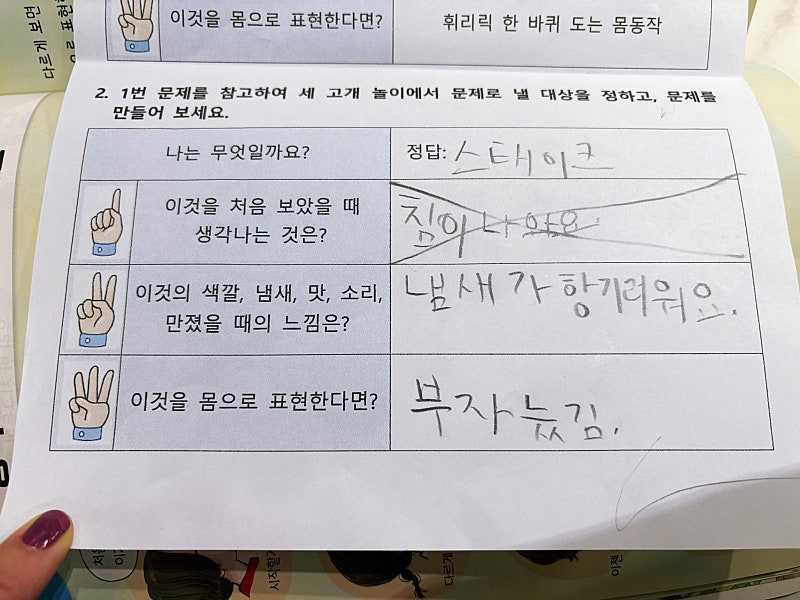 이것을 몸으로 표현한다면?
휘리릭 한 바퀴 도는 몸동작
다르게 보면
으로 표현
2. 1번 문제를 참고하여 세 고개 놀이에서 문제로 낼 대상을 정하고, 문제를
만들어 보세요.
나는 무엇일까요?
정답: 스테이크
이것을 처음 보았을 때
생각나는 것은?
침이 나와요.
이것의 색깔, 냄새, 맛, 소리,
만졌을 때의 느낌은?
냄새가 향기러워요.
이것을 몸으로 표현한다면?
부자늤김.
시작할
다르게
이젠